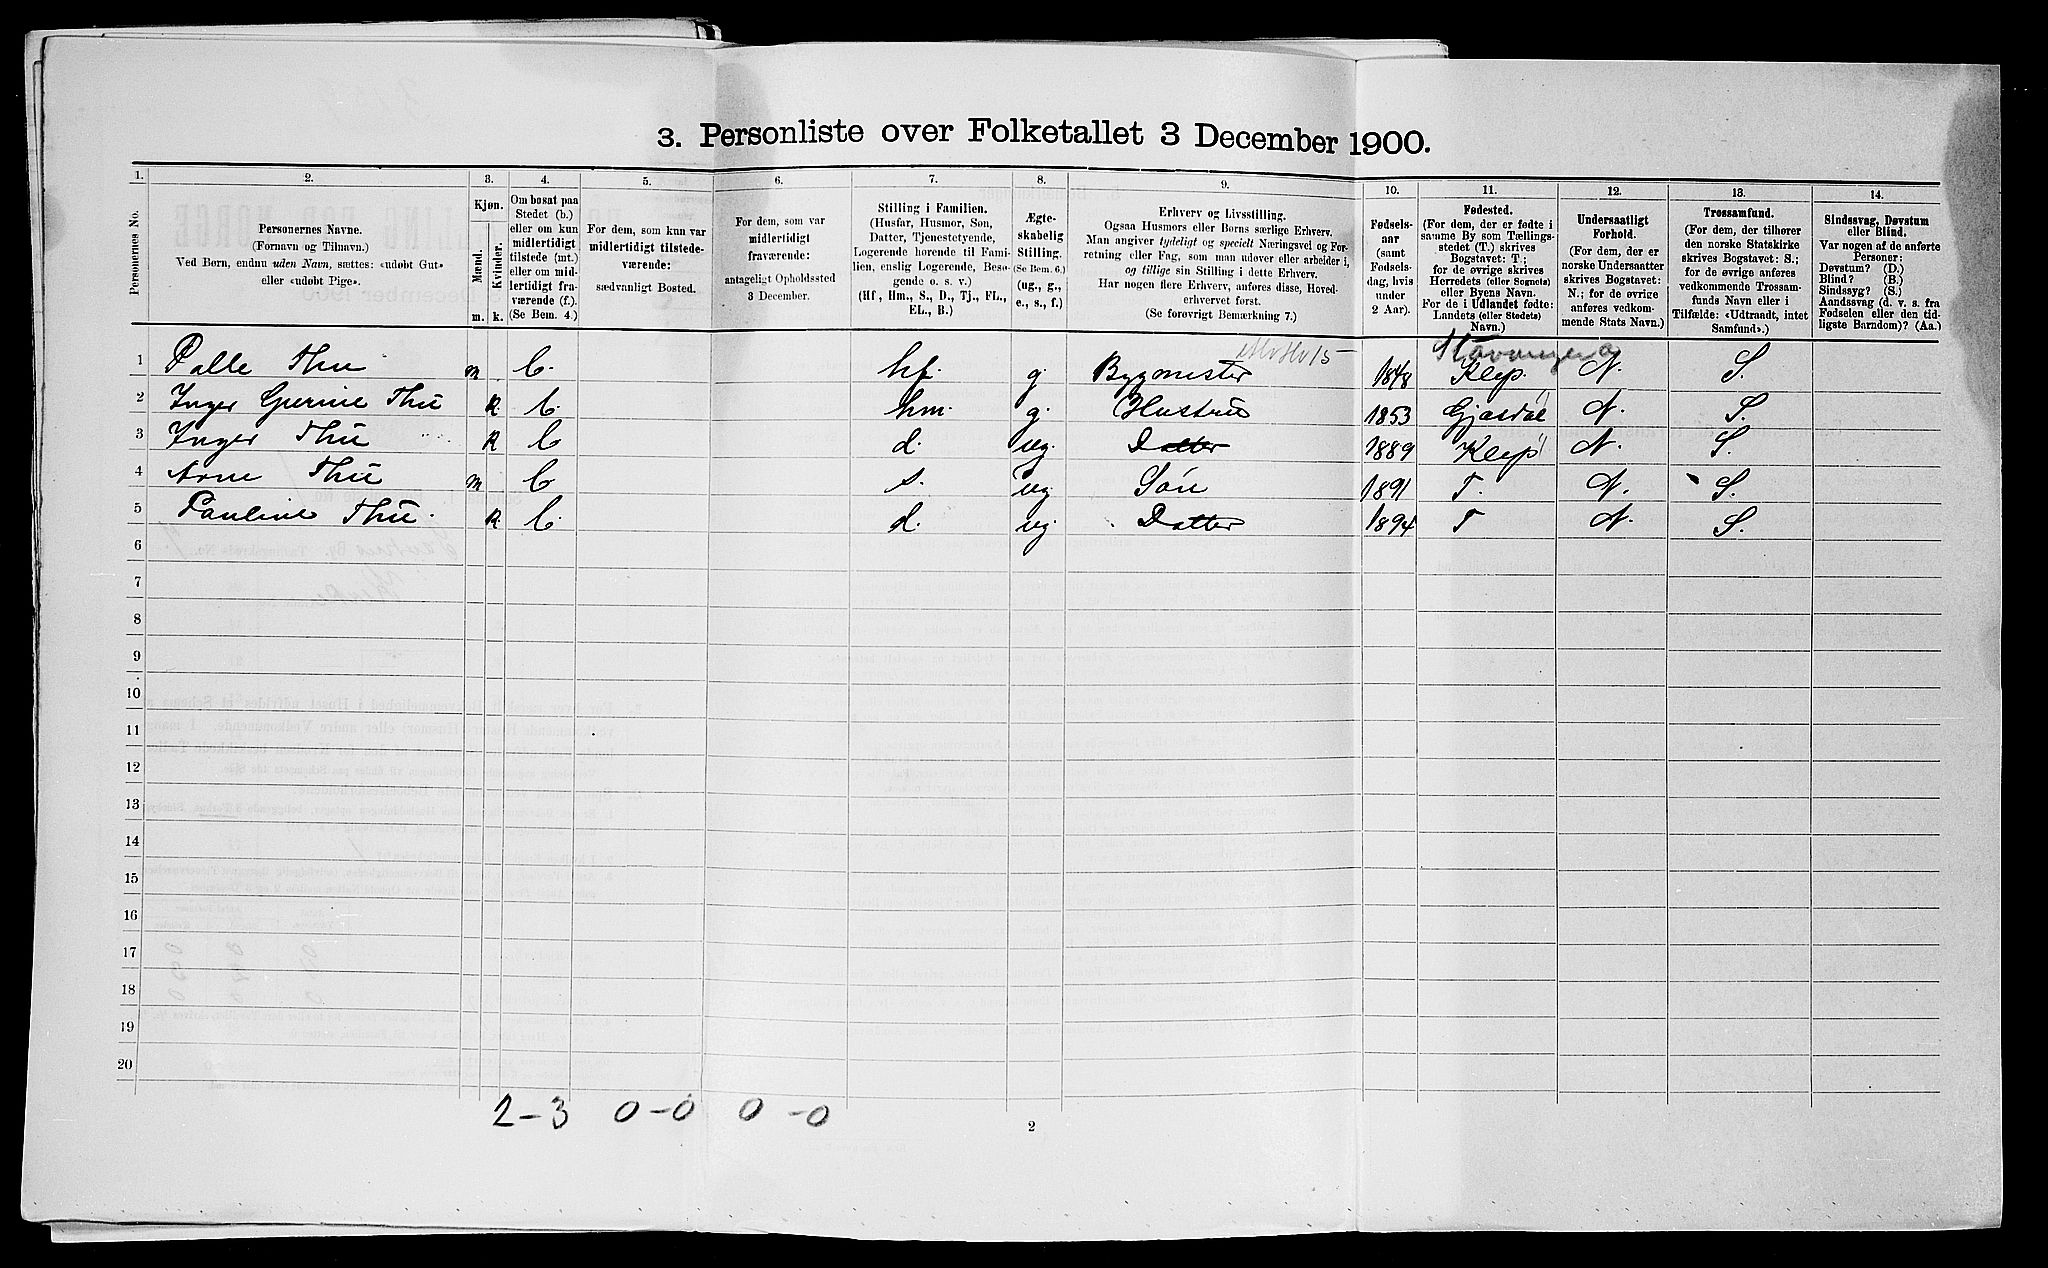 3. Personliste over Folketallet 3 December 1900.
1. 2. 3. 4. 5. 6. 7. 8. 9. 10. 11. 12. 13. 14.
Personernes No.
Personernes Navne.
(Fornavn og Tilnavn.)
Ved Børn, endnu uden Navn, sættes: «udøbt Gut»
eller «udøbt Pige».
Kjøn.
Mænd.
Kvinder.
m. k.
Om bosat paa
Stedet (b.)
eller om kun
midlertidigt
tilstede (mt.)
eller om mid-
lertidigt fra-
værende (f.).
(Se Bem. 4.)
For dem, som kun var
midlertidigt tilstede-
værende:
sædvanligt Bosted.
For dem, som var
midlertidigt
fraværende:
antageligt Opholdssted
3 December.
Stilling i Familien.
(Husfar, Husmor, Søn,
Datter, Tjenestetyende,
Logerende hørende til Fami-
lien, enslig Logerende, Besø-
gende o. s. v.)
(Hf, Hm., S., D., Tj., FL.,
EL., B.)
Ægte-
skabelig
Stilling.
(Se Bem. 6.)
(ug., g.,
e., s., f.)
Erhverv og Livsstilling.
Ogsaa Husmors eller Børns særlige Erhverv.
Man angiver tydeligt og specielt Næringsvei og For-
retning eller Fag, som man udøver eller arbeider i,
og tillige sin Stilling i dette Erhverv.
Har nogen flere Erhverv, anføres disse, Hoved-
erhvervet først.
(Se forøvrigt Bemærkning 7.)
Fødsels-
aar
(samt
Fødsels-
dag, hvis
under
2 Aar).
Fødested.
(For dem, der er fødte i
samme By som Tællings-
stedet (T.) skrives
Bogstavet: T.;
for de øvrige skrives
Herredets (eller Sognets)
eller Byens Navn.
For de i Udlandet fødte:
Landets (eller Stedets)
Navn.)
Undersaatligt
Forhold.
(For dem, der er
norske Undersaatter
skrives Bogstavet:
N.; for de øvrige
anføres vedkom-
mende Stats Navn.)
Trossamfund.
(For dem, der tilhører
den norske Statskirke
skrives Bogstavet: S.;
for de øvrige anføres
vedkommende Trossam-
funds Navn eller i
Tilfælde: «Udtraadt, intet
Samfund».)
Sindssvag, Døvstum
eller Blind.
Var nogen af de anførte
Personer:
Døvstum? (D.)
Blind? (B.)
Sindssyg? (S.)
Aandssvag (d. v. s. fra
Fødselen eller den tid-
ligste Barndom)? (Aa.)
15 Stavanger a
1 Palle Thu m b. hf. g. Bygmester 1848 Klep. N. S.
2 Inger Gurine Thu k. b. hm. g. Hustru 1853 Gjæsdal N. S.
3 Inger Thu k b d. ug. Datter 1889 Klep N. S.
4 Arne Thu m b s. ug Søn 1891 T. N. S.
5 Pauline Thu. k. b. d. ug. Datter 1894 T N. S.
6
7
8
9
10
11
12
13
14
15
16
17
18
19
20
2-3 0-0 0-0
2